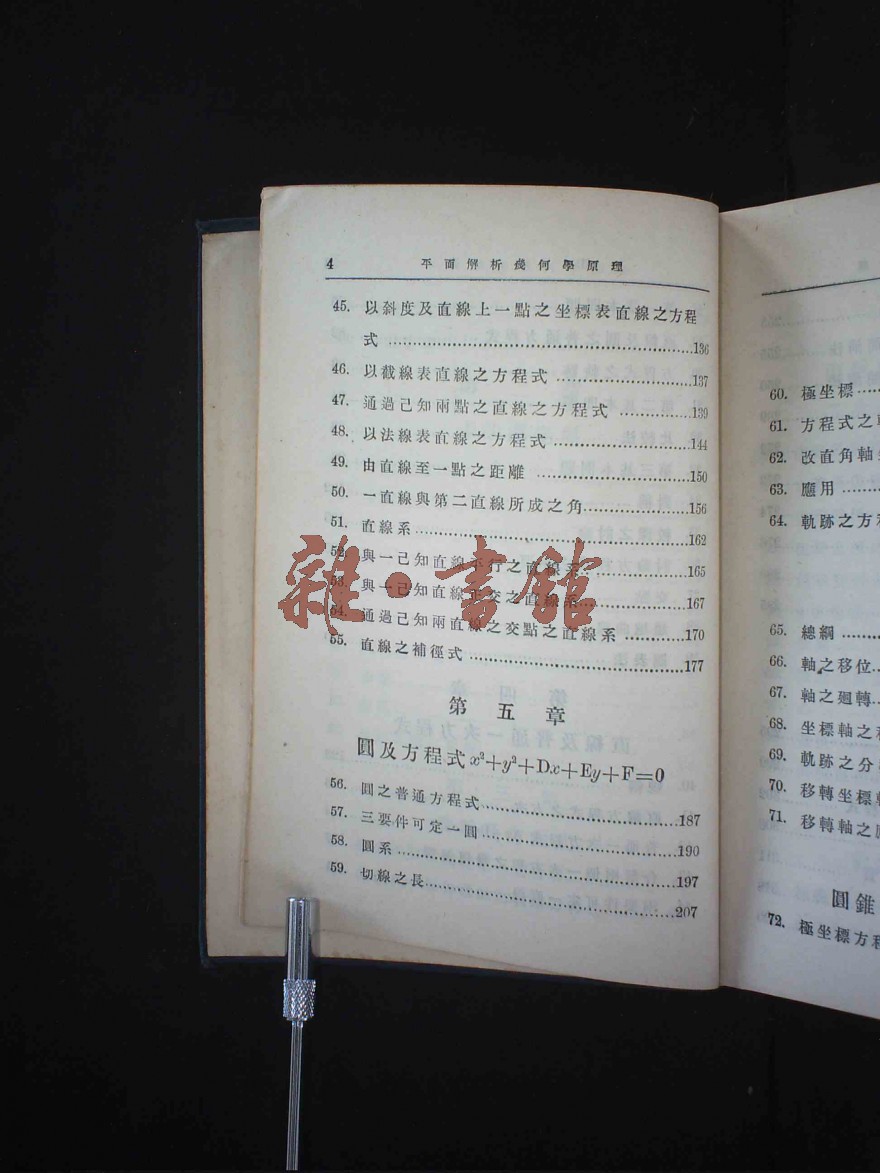 4 平面解析幾何學原理
45. 以斜度及直線上一點之坐標表直線之方程
式 ……136
46. 以截線表直線之方程式 ……137
47. 通過已知兩點之直線之方程式 ……139
48. 以法線表直線之方程式 ……144
49. 由直線至一點之距離 ……150
50. 一直線與第二直線所成之角……156
51. 直線系……162
52. 與一已知直線平行之直線系……165
53. 與一已知直線正交之直線系……167
54. 通過已知兩直線之交點之直線系 ……170
55. 直線之補徑式 ……177
第五章
圓及方程式x²+y²+Dx+Ey+F=0
56. 圓之普通方程式……187
57. 三要件可定一圓……190
58. 圓系……197
59. 切線之長……207
雜·書館
60. 極坐標……
61. 方程式之
62. 改直角軸
63. 應用……
64. 軌跡之方
65. 總綱……
66. 軸之移位……
67. 軸之廻轉……
68. 坐標軸之
69. 軌跡之分
70. 移轉坐標
71. 移轉軸之
圓錐
72. 極坐標方程